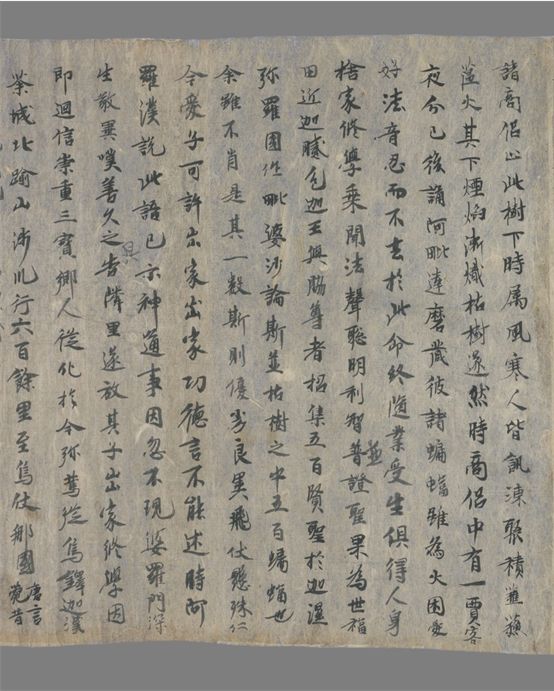 諸商侶止此樹下時属風寒人皆飢凍聚積樵蘇
蕰火其下煙焰漸熾枯樹遂然時商侶中有一賈客
夜分已後誦阿毗達磨藏彼諸蝙蝠雖為火困愛
好法音忍而不去於此命終隨業受生俱得人身
捨家修學乘聞法聲聦明利智普證聖果為世福
並
田近迦膩色迦王與脇尊者招集五百賢聖於迦濕
弥羅國作毗婆沙論斯並枯樹之中五百蝙蝠也
余雖不肖是其一數斯則優劣良異飛仗懸殊仁
今愛子可許出家出家功德言不能述時阿
羅漢說此語已示神通事因忽不現婆羅門深
生敬異嘆善久之告隣里遂放其子出家修學因
具
即迴信崇重三寶鄉人從化於今弥篤從烏鐸迦漢
荼城北踰山涉川行六百餘里至烏仗那國唐言苑昔